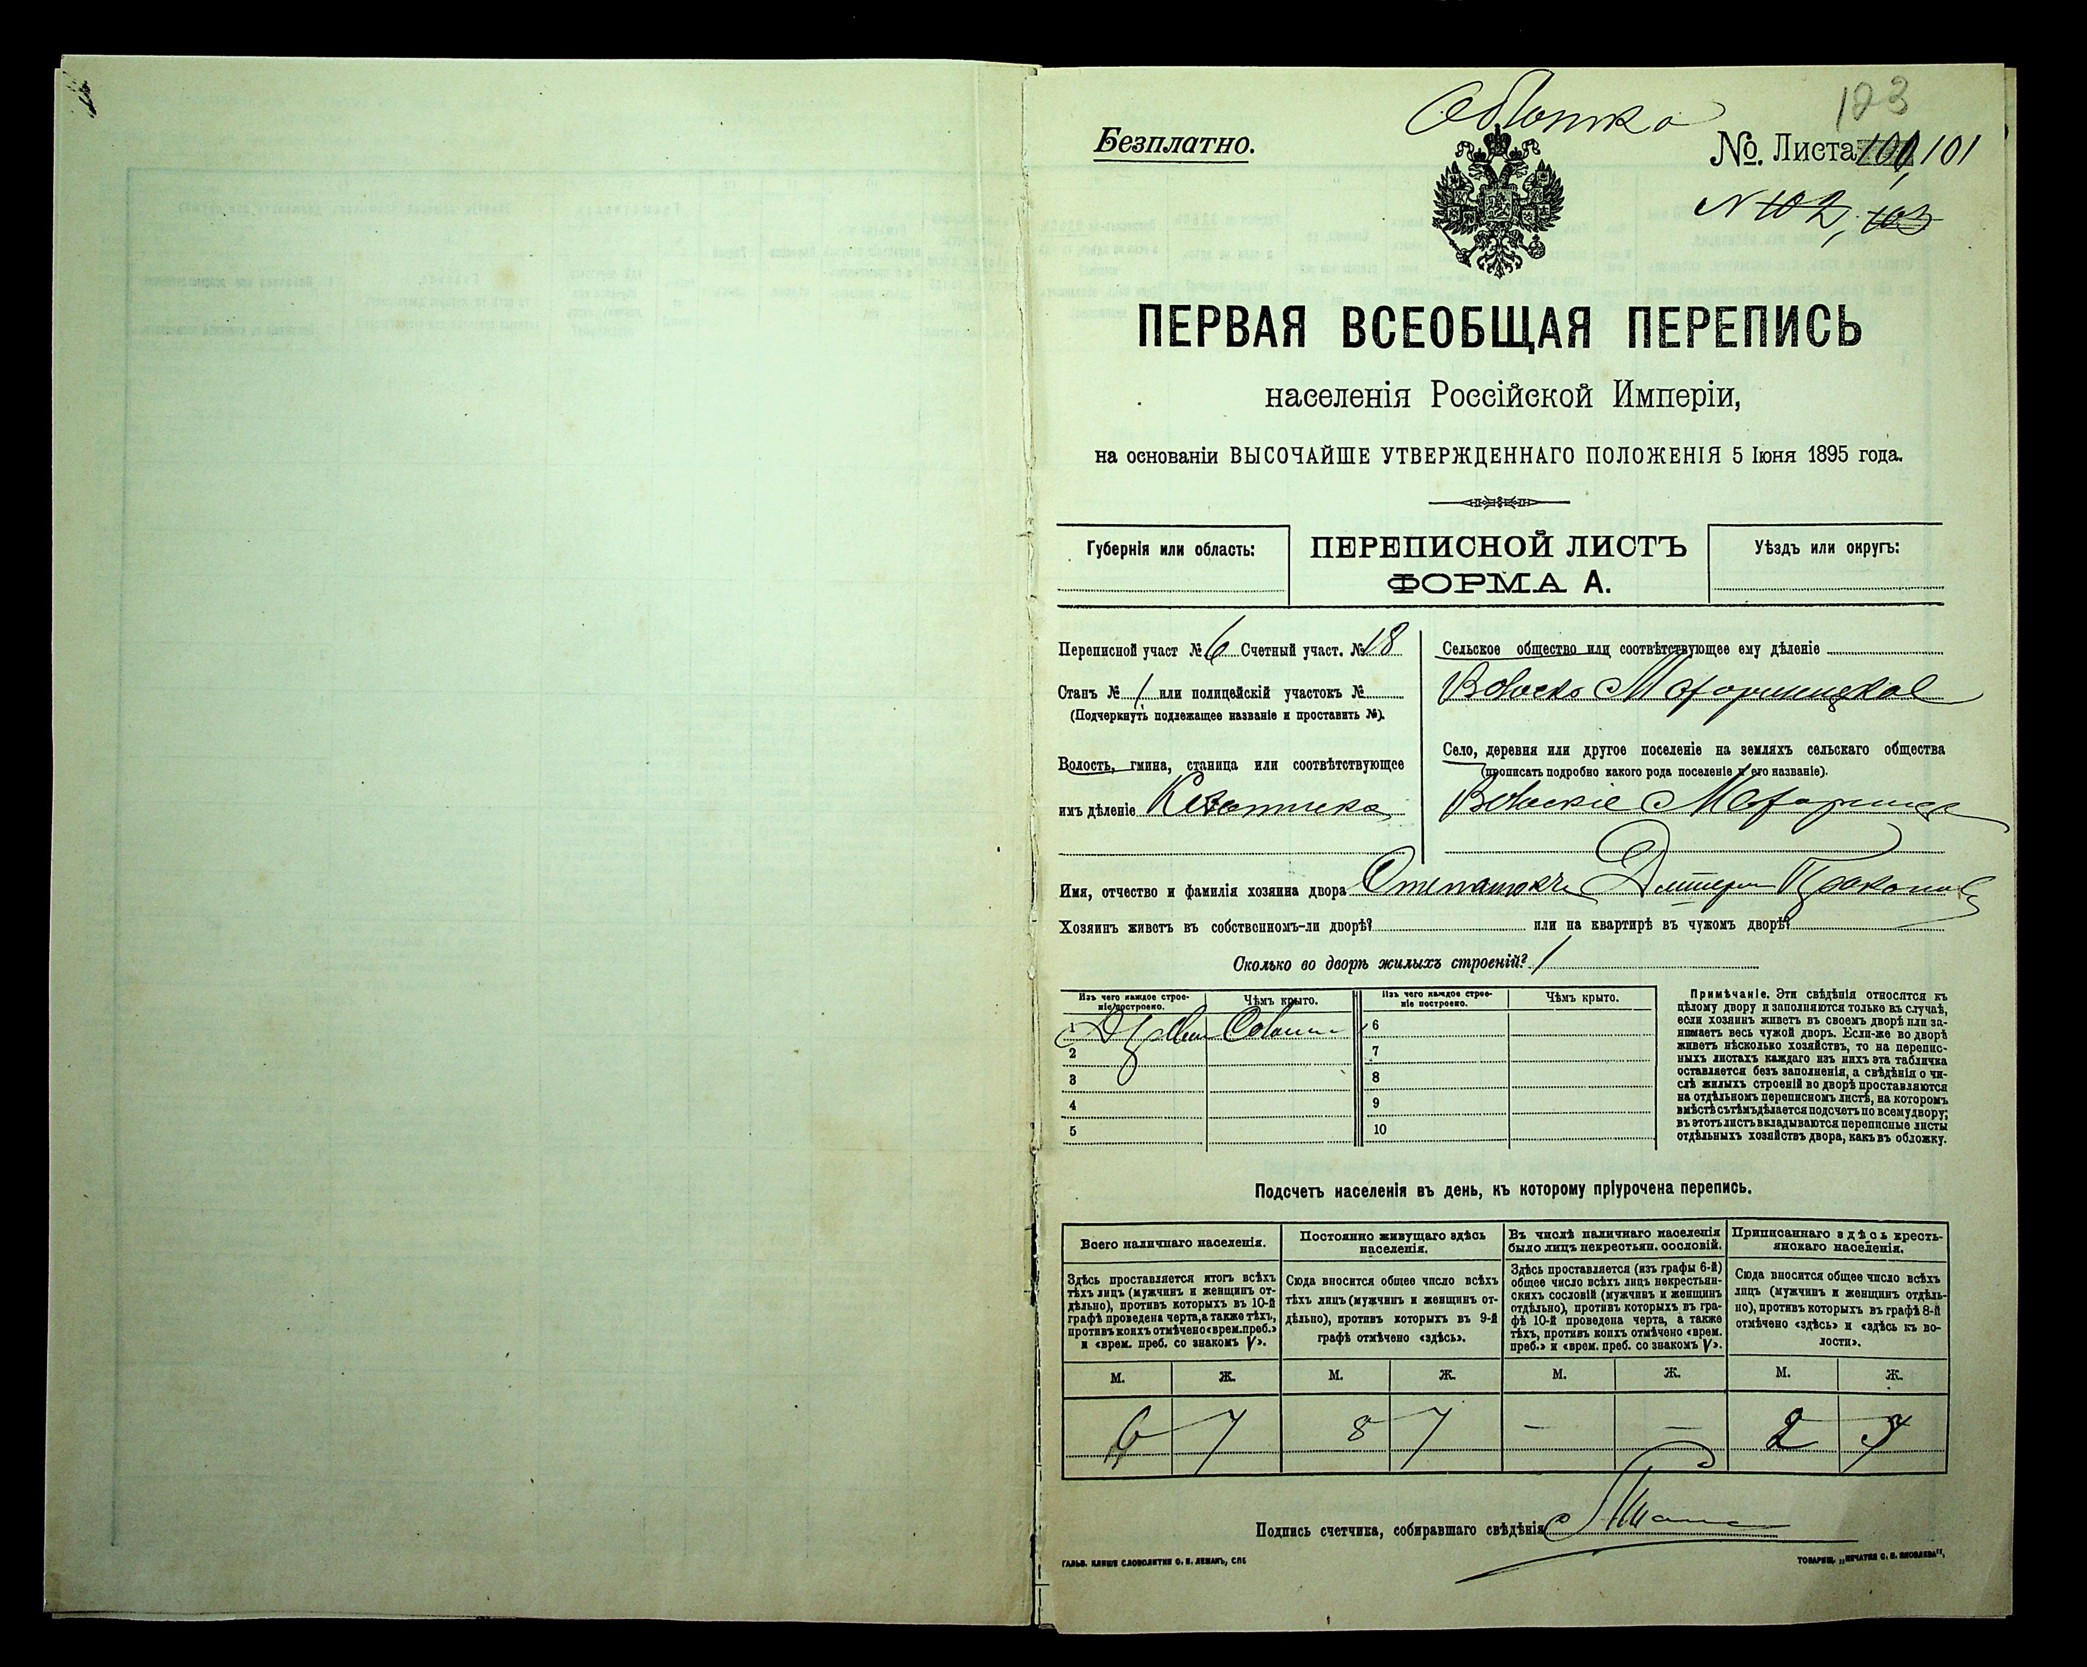 Обложка
123
Безплатно.
№. Листа 100, 101
N 102, 103
ПЕРВАЯ ВСЕОБЩАЯ ПЕРЕПИСЬ
населенія Россійской Имперіи,
на основаніи ВЫСОЧАЙШЕ УТВЕРЖДЕННАГО ПОЛОЖЕНІЯ 5 Іюня 1895 года.
Губернія или область:
ПЕРЕПИСНОЙ ЛИСТЪ
ФОРМА А.
Уѣздъ или округъ:
Переписной участ № 6 Счетный участ. № 18
Станъ № 1 или полицейскій участокъ №
(Подчеркнуть подлежащее названіе и проставить №).
Волость, гмина, станица или соотвѣтствующее
имъ дѣленіе
Сельское общество или соотвѣтствующее ему дѣленіе
Село, деревня или другое поселеніе на земляхъ сельскаго общества
(прописать подробно какого рода поселеніе и его названіе).
Имя, отчество и фамилія хозяина двора Степанюкъ
Хозяинъ живетъ въ собственномъ-ли дворѣ? или на квартирѣ въ чужомъ дворѣ?
Сколько во дворѣ жилыхъ строеній? 1
Изъ чего каждое строе-
ніе построено.
Чѣмъ крыто.
Изъ чего каждое строе-
ніе построено.
Чѣмъ крыто.
1
2
3
4
5
6
7
8
9
10
Примѣчаніе. Эти свѣдѣнія относятся къ
цѣлому двору и заполняются только въ случаѣ,
если хозяинъ живетъ въ своемъ дворѣ или за-
нимаетъ весь чужой дворъ. Если-же во дворѣ
живетъ нѣсколько хозяйствъ, то на перепис-
ныхъ листахъ каждаго изъ нихъ эта табличка
оставляется безъ заполненія, а свѣдѣнія о чи-
слѣ жилыхъ строеній во дворѣ проставляются
на отдѣльномъ переписномъ листѣ, на которомъ
вмѣстѣ съ тѣмъ дѣлается подсчетъ по всему двору;
въ этотъ листъ вкладываются переписные листы
отдѣльныхъ хозяйствъ двора, какъ въ обложку.
Подсчетъ населенія въ день, къ которому пріурочена перепись.
Всего наличнаго населенія.
Здѣсь проставляется итогъ всѣхъ
тѣхъ лицъ (мужчинъ и женщинъ от-
дѣльно), противъ которыхъ въ 10-й
графѣ проведена черта, а также тѣхъ,
противъ коихъ отмѣчено «врем. преб.»
и «врем. преб. со знакомъ V».
Постоянно живущаго здѣсь
населенія.
Сюда вносится общее число всѣхъ
тѣхъ лицъ (мужчинъ и женщинъ от-
дѣльно), противъ которыхъ въ 9-й
графѣ отмѣчено «здѣсь».
Въ числѣ наличнаго населенія
было лицъ некрестьян. сословій.
Здѣсь проставляется (изъ графы 6-й)
общее число всѣхъ лицъ некрестьян-
скихъ сословій (мужчинъ и женщинъ
отдѣльно), противъ которыхъ въ гра-
фѣ 10-й проведена черта, а также
тѣхъ, противъ коихъ отмѣчено «врем.
преб.» и «врем. преб. со знакомъ V».
Приписаннаго здѣсь кресть-
янскаго населенія.
Сюда вносится общее число всѣхъ
лицъ (мужчинъ и женщинъ отдѣль-
но), противъ которыхъ въ графѣ 8-й
отмѣчено «здѣсь» и «здѣсь къ во-
лости».
М. Ж. М. Ж. М. Ж. М. Ж.
6 7 8 7 — — 2
Подпись счетчика, собиравшаго свѣдѣнія
ГАЛЬВ. КЛИШЕ СЛОВОЛИТНИ О. И. ЛЕМАНЪ, СПБ
ТОВАРИЩ. „ПЕЧАТНЯ С. П. ЯКОВЛЕВА",